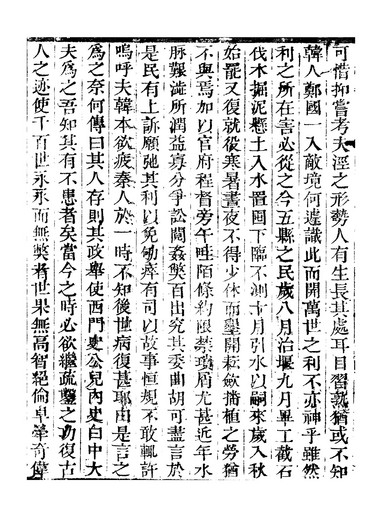 可惜抑嘗考夫涇之形勢人有生長其處耳目習熟猶或不知
韓人鄭國一入敵境何遽識此而開萬世之利不亦神乎雖然
利之所在害必從之今五縣之民歲八月治堰九月畢工截石
伐木掘泥懸土入水置囤下臨不測十月引水以嗣來歲入秋
始罷又復就役寒暑晝夜不得少休而墾開耘斂播植之勞猶
不與焉加以官府程督旁午咀陌條約限禁瑣屑尤甚近年水
脉艱澁所潤益寡分爭訟鬩姦弊百出究其委曲胡可盡言於
是民有上訴願弛其利以免劬瘁有司以故事恒規不敢輒許
嗚呼夫韓本欲疲秦人於一時不知後世病復甚耶由是言之
為之奈何傳曰其人存則其政舉使西門史公兒內史白中大
夫為之吾知其有不患者矣當今之時必欲繼疏鑿之功復古
人之迹使千百世永永而無弊者世果無高智絕倫卓犖奇偉